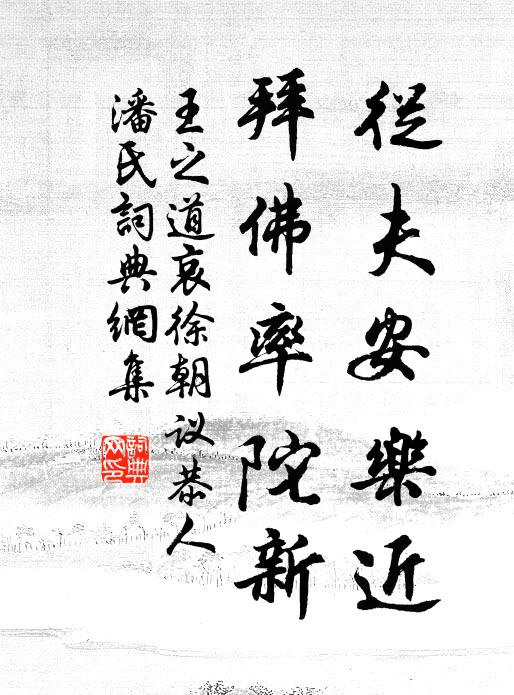 從夫安樂近
拜佛率陀新
王之道哀徐朝议恭人
潘氏詞典網集
詞典网印